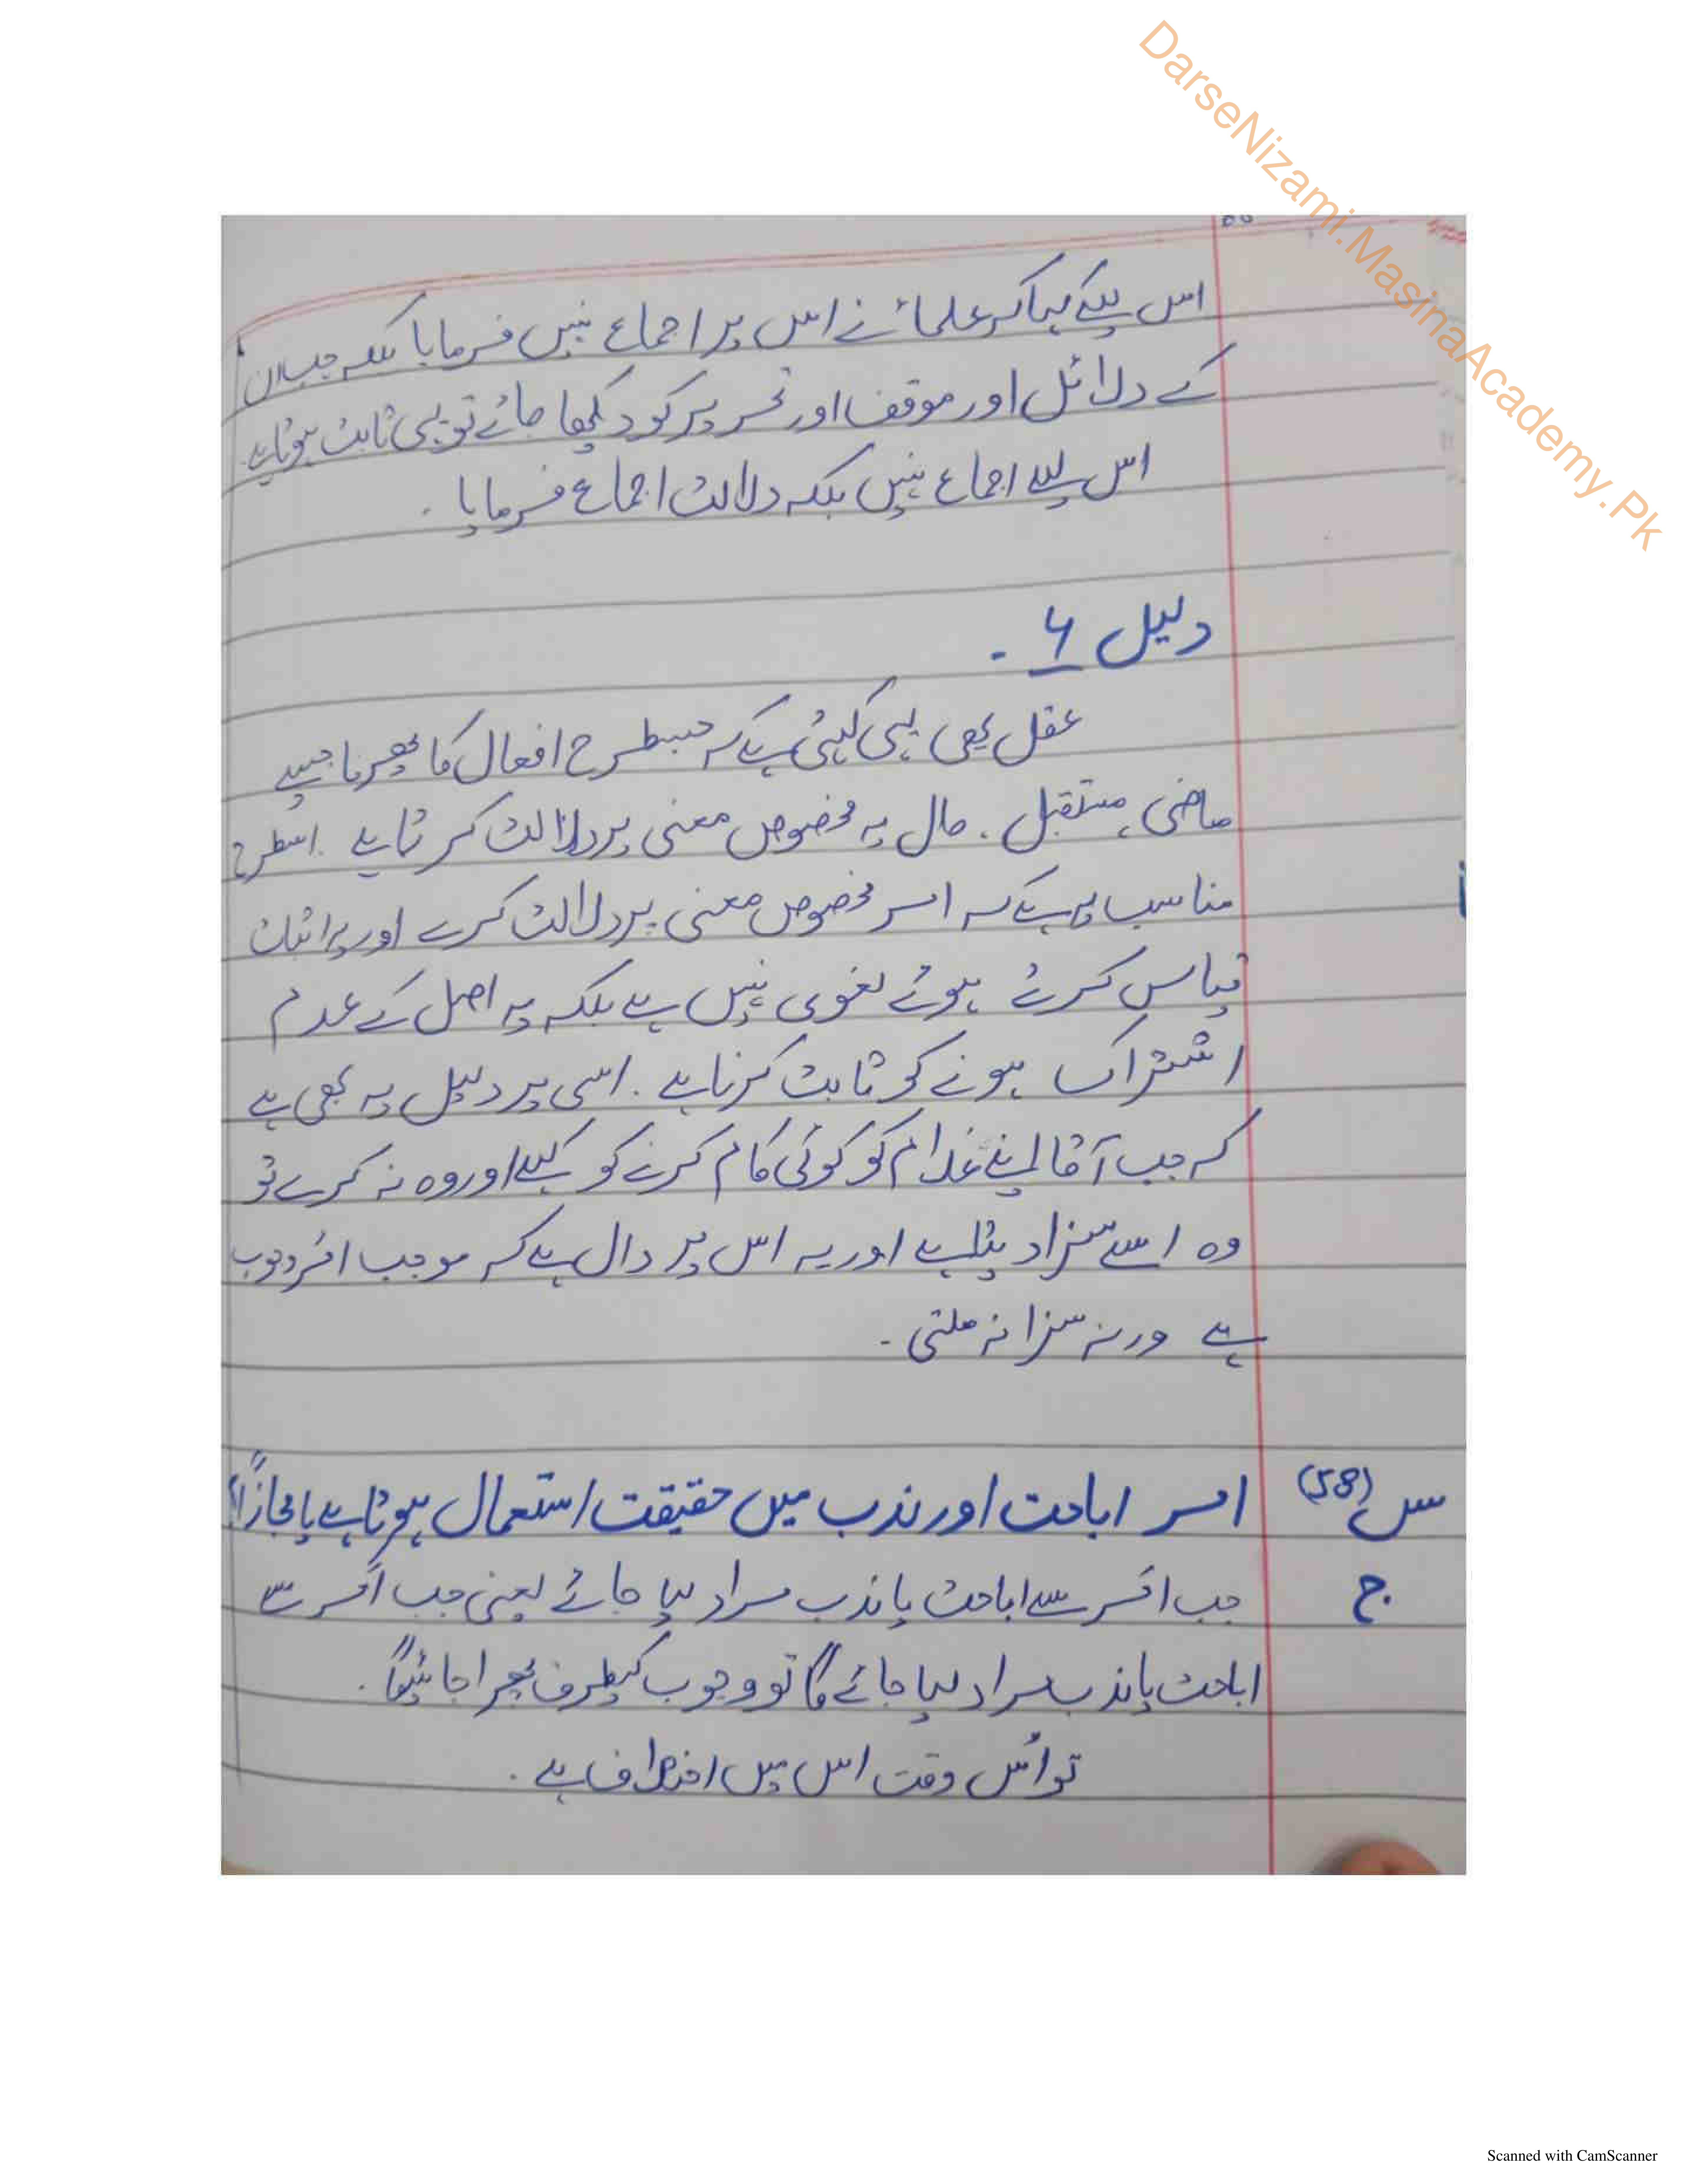 DarseNizami.MasinaAcademy.Pk
اس لیے کہا کہ علمائے نے اس پر اجماع نہیں فرمایا بلکہ جب ان
کے دلائل اور موقف اور تحریر کو دیکھا جائے تو یہی ثابت ہوتا ہے
اس لیے اجماع نہیں بلکہ دلالت اجماع فرمایا ۔
دلیل ۶ ۔
عقل بھی یہی کہتی ہے کہ جسطرح افعال کا پھرنا جیسے
ماضی، مستقبل ، حال یہ مخصوص معنی پر دلالت کرتا ہے ۔ اسطرح
مناسب یہ ہے کہ امر مخصوص معنی پر دلالت کرے اور یہ اثبات
قیاس کرتے ہوئے لغوی نہیں ہے بلکہ یہ اصل کے عدم
اشتراک ہونے کو ثابت کرنا ہے ۔ اسی پر دلیل یہ بھی ہے
کہ جب آقا اپنے غلام کو کوئی کام کرنے کو کہے اور وہ نہ کرے تو
وہ اسے سزا دیتا ہے اور یہ اس پر دال ہے کہ موجب امر وجوب
ہے ورنہ سزا نہ ملتی ۔
س (58) امر اباحت اور ندب میں حقیقت استعمال ہوتا ہے یا مجازًا؟
ج جب امر سے اباحت یا ندب مراد لیا جائے یعنی جب امر سے
اباحت یا ندب مراد لیا جائے گا تو وجوب کیطرف پھرا جائیگا ۔
تو اُس وقت اس میں اختلاف ہے ۔
Scanned with CamScanner